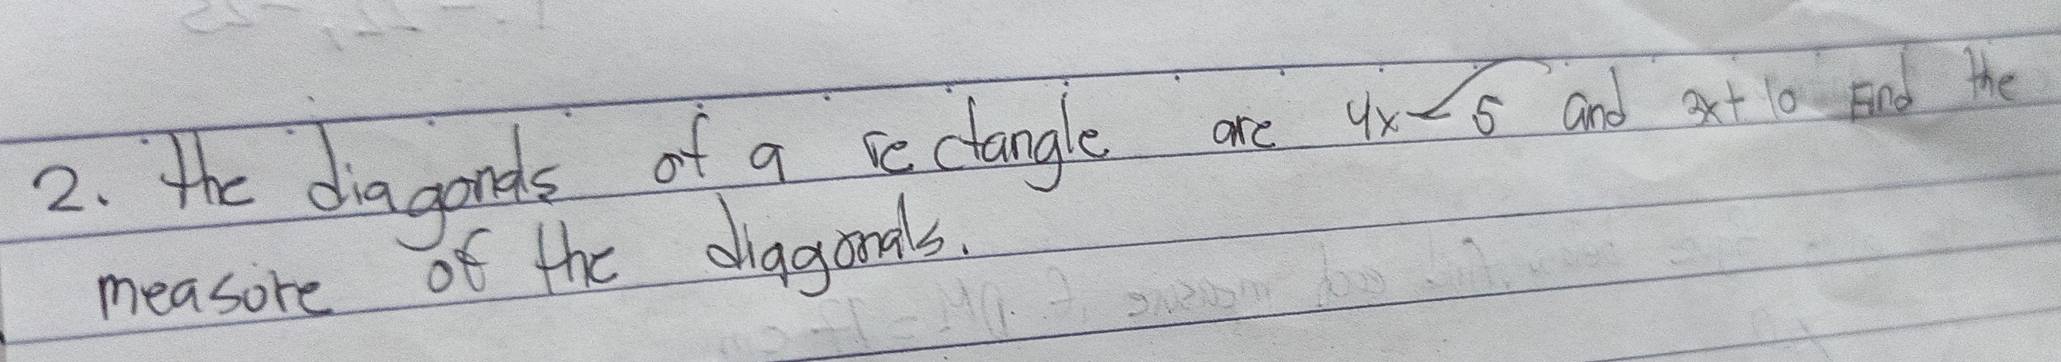 2. The diagonals of a rectangle are 4x-5 and 3x+10 Find the
measure of the diagonals.